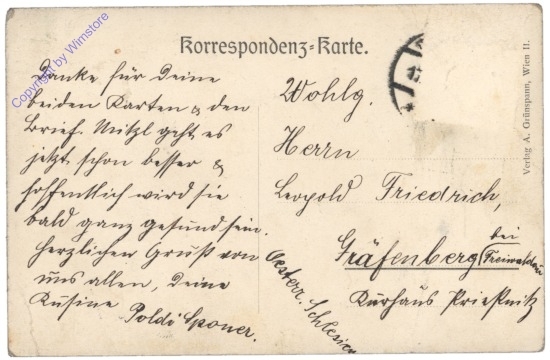 Korrespondenz-Karte.
Danke für Deine
beiden Karten & den
Brief. Mitzl geht es
jetzt schon besser &
hoffentlich wird sie
bald ganz gesund sein.
Herzlichen Gruß von
uns allen, Deine
Kusine
Poldi Sponer.
Wohlg.
Herrn
Leopold Friedrich,
Gräfenberg bei Freiwaldau
Kurhaus Prießnitz
Oesterr. Schlesien
Verlag A. Grünspann, Wien II.
Copyright by Wimstore